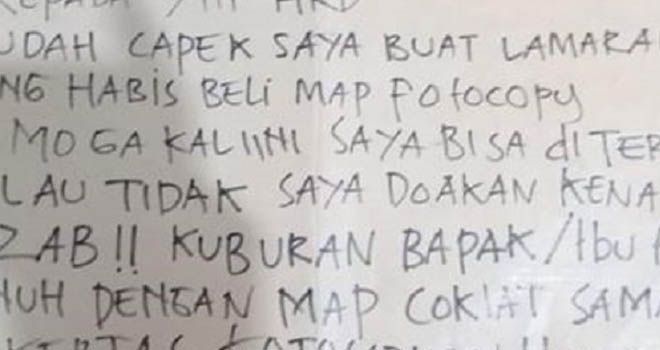 KEPADA YTH HRD
UDAH CAPEK SAYA BUAT LAMARA
NG HABIS BELI MAP FOTOCOPY
MOGA KALIINI SAYA BISA DITER
LAU TIDAK SAYA DOAKAN KENA
ZAB!! KUBURAN BAPAK/Ibu
NUH DENGAN MAP COKLAT SAMA
KERTAS FOTOCOPY !!